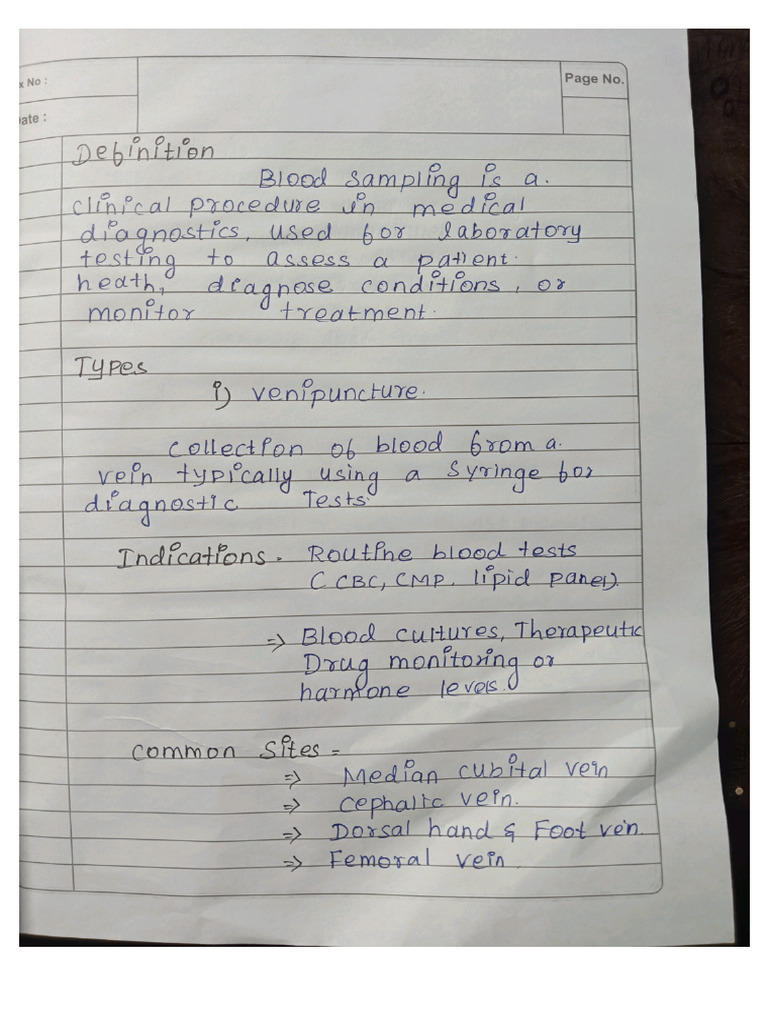 x No :
Page No.
Date :
Definition
Blood sampling is a.
clinical procedure in medical
diagnostics, used for laboratory
testing to assess a patient.
heath, diagnose conditions, or
monitor treatment.
Types
i) venipuncture.
collection of blood from a.
vein typically using a syringe for
diagnostic Tests.
Indications - Routine blood tests
( CBC, CMP, lipid panel).
⇒ Blood cultures, Therapeutic
Drug monitoring or
harmone levels.
common Sites =
⇒ Median cubital vein
⇒ cephalic vein.
⇒ Dorsal hand & Foot vein
⇒ Femoral vein